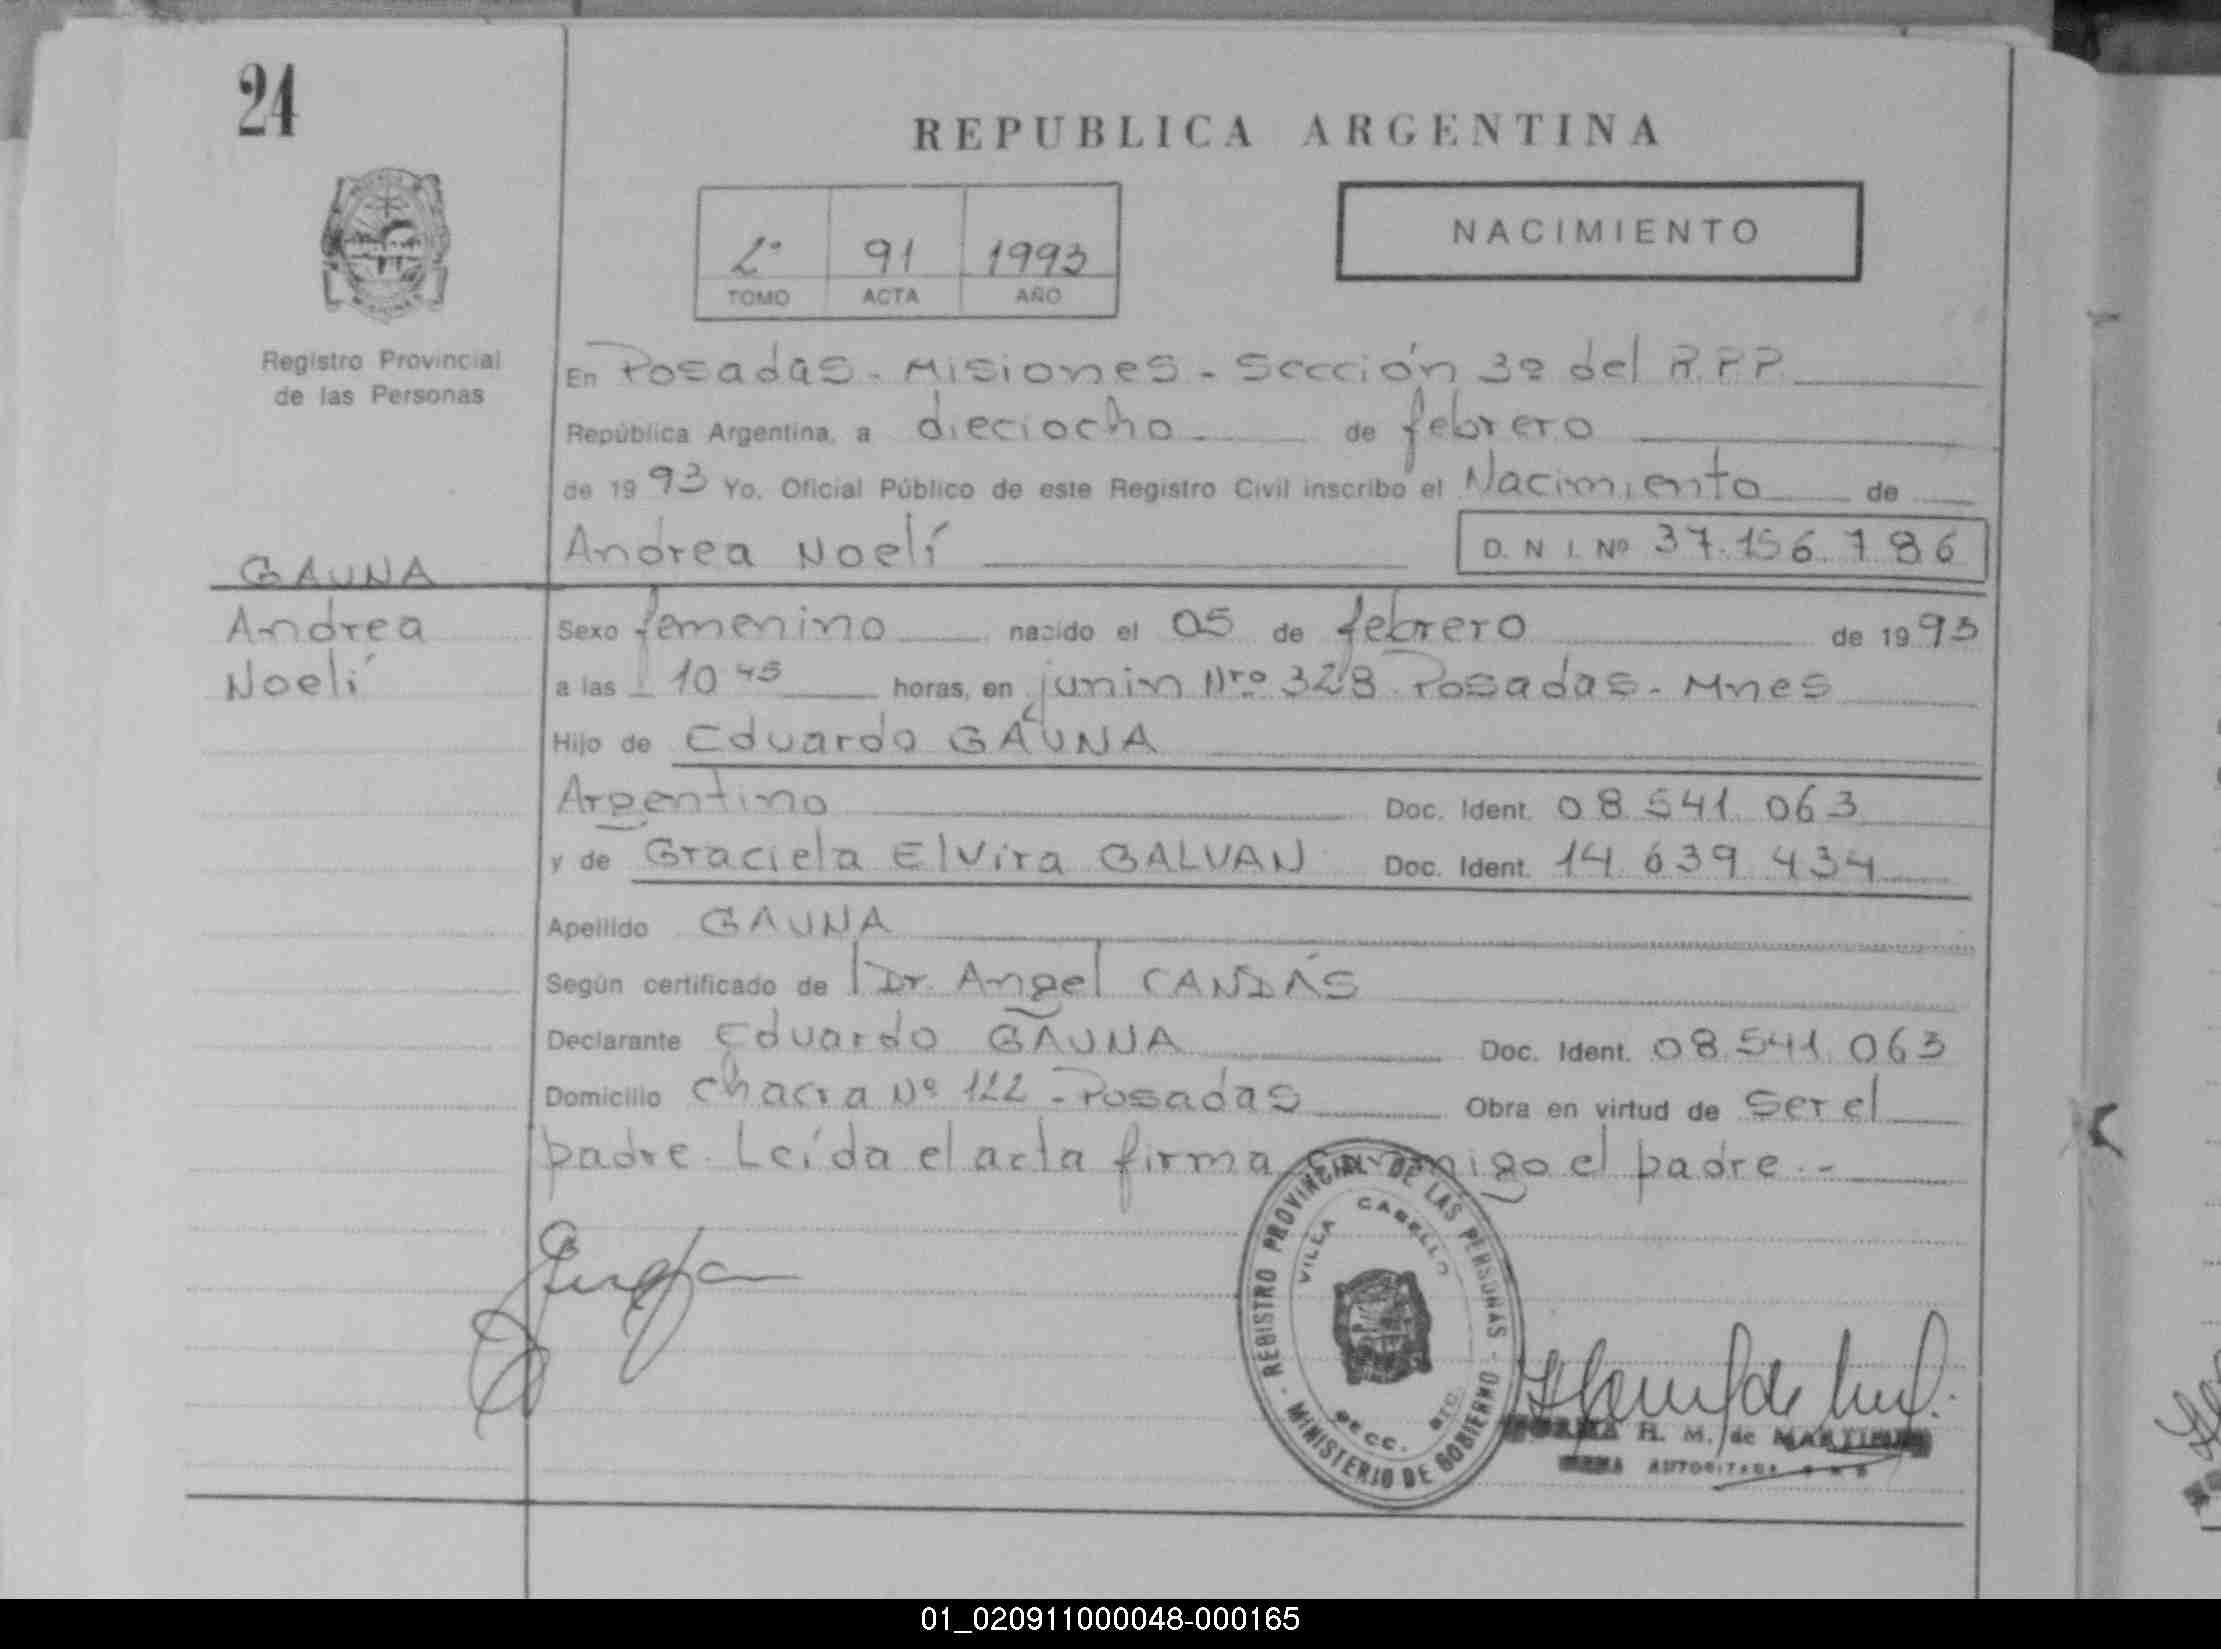 24
REPUBLICA ARGENTINA
2º 91 1993
TOMO ACTA AÑO
NACIMIENTO
Registro Provincial
de las Personas
En Posadas - Misiones - Sección 3º del R.P.P.
República Argentina, a dieciocho de febrero
de 1993 Yo, Oficial Público de este Registro Civil inscribo el Nacimiento de
Andrea Noelí D.N.I. Nº 37.156.786
GAUNA
Andrea
Noelí
Sexo femenino nacido el 05 de febrero de 1993
a las 10 45 horas, en junin Nro 328 Posadas - Mnes
Hijo de Eduardo GAUNA
Argentino Doc. Ident. 08.541.063
y de Graciela Elvira GALVAN Doc. Ident. 14.639.434
Apellido GAUNA
Según certificado de Dr. Angel CANDÁS
Declarante Eduardo GAUNA Doc. Ident. 08.541.063
Domicilio Chacra Nº 122 - Posadas Obra en virtud de ser el
padre. Leída el acta firma conmigo el padre.-
REGISTRO PROVINCIAL DE LAS PERSONAS - MINISTERIO DE GOBIERNO -
VILLA CABELLO
SECC.
H. M. de MARTINEZ
01_020911000048-000165